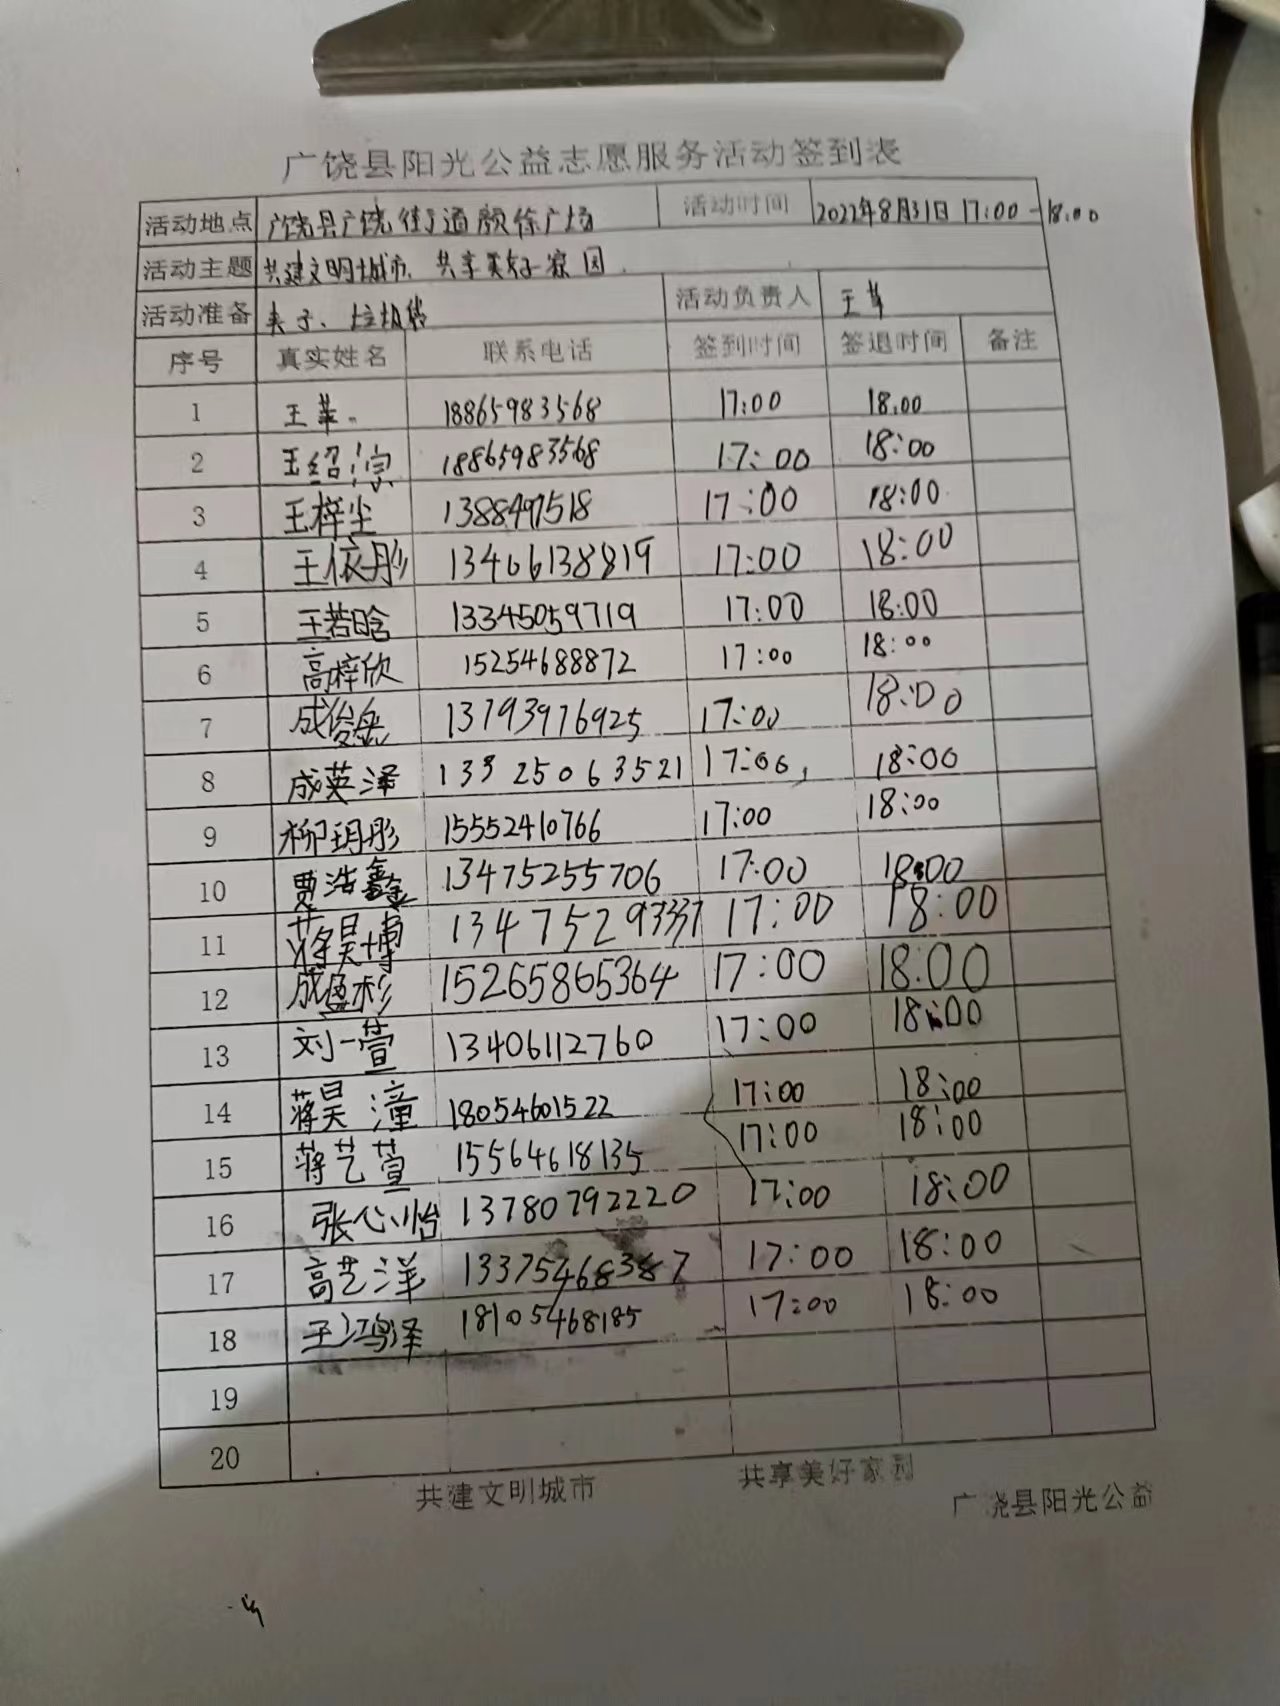 广饶县阳光公益志愿服务活动签到表
活动地点 广饶县广饶街道颜徐广场 活动时间 2022年8月31日 17:00-18:00
活动主题 共建文明城市、共享美好家园
活动准备 夹子、垃圾袋 活动负责人 王苹
序号 真实姓名 联系电话 签到时间 签退时间 备注
1 王苹 18865983568 17:00 18:00
2 王绍淙 18865983568 17:00 18:00
3 王梓尘 1388497518 17:00 18:00
4 王依彤 13406138819 17:00 18:00
5 王若晗 13345059719 17:00 18:00
6 高梓欣 15254688872 17:00 18:00
7 成俊 13793976925 17:00 18:00
8 成英泽 13325063521 17:00 18:00
9 柳玥彤 15552410766 17:00 18:00
10 贾浩鑫 13475255706 17:00 18:00
11 蒋昊博 17:00 18:00
12 成盈杉 15265865364 17:00 18:00
13 刘一萱 13406112760 17:00 18:00
14 蒋昊潼 18054601522 17:00 18:00
15 蒋艺萱 15564618135 17:00 18:00
16 张心怡 13780792220 17:00 18:00
17 高艺洋 13375468387 17:00 18:00
18 王鸿泽 18105468185 17:00 18:00
19
20
共建文明城市 共享美好家园
广饶县阳光公益